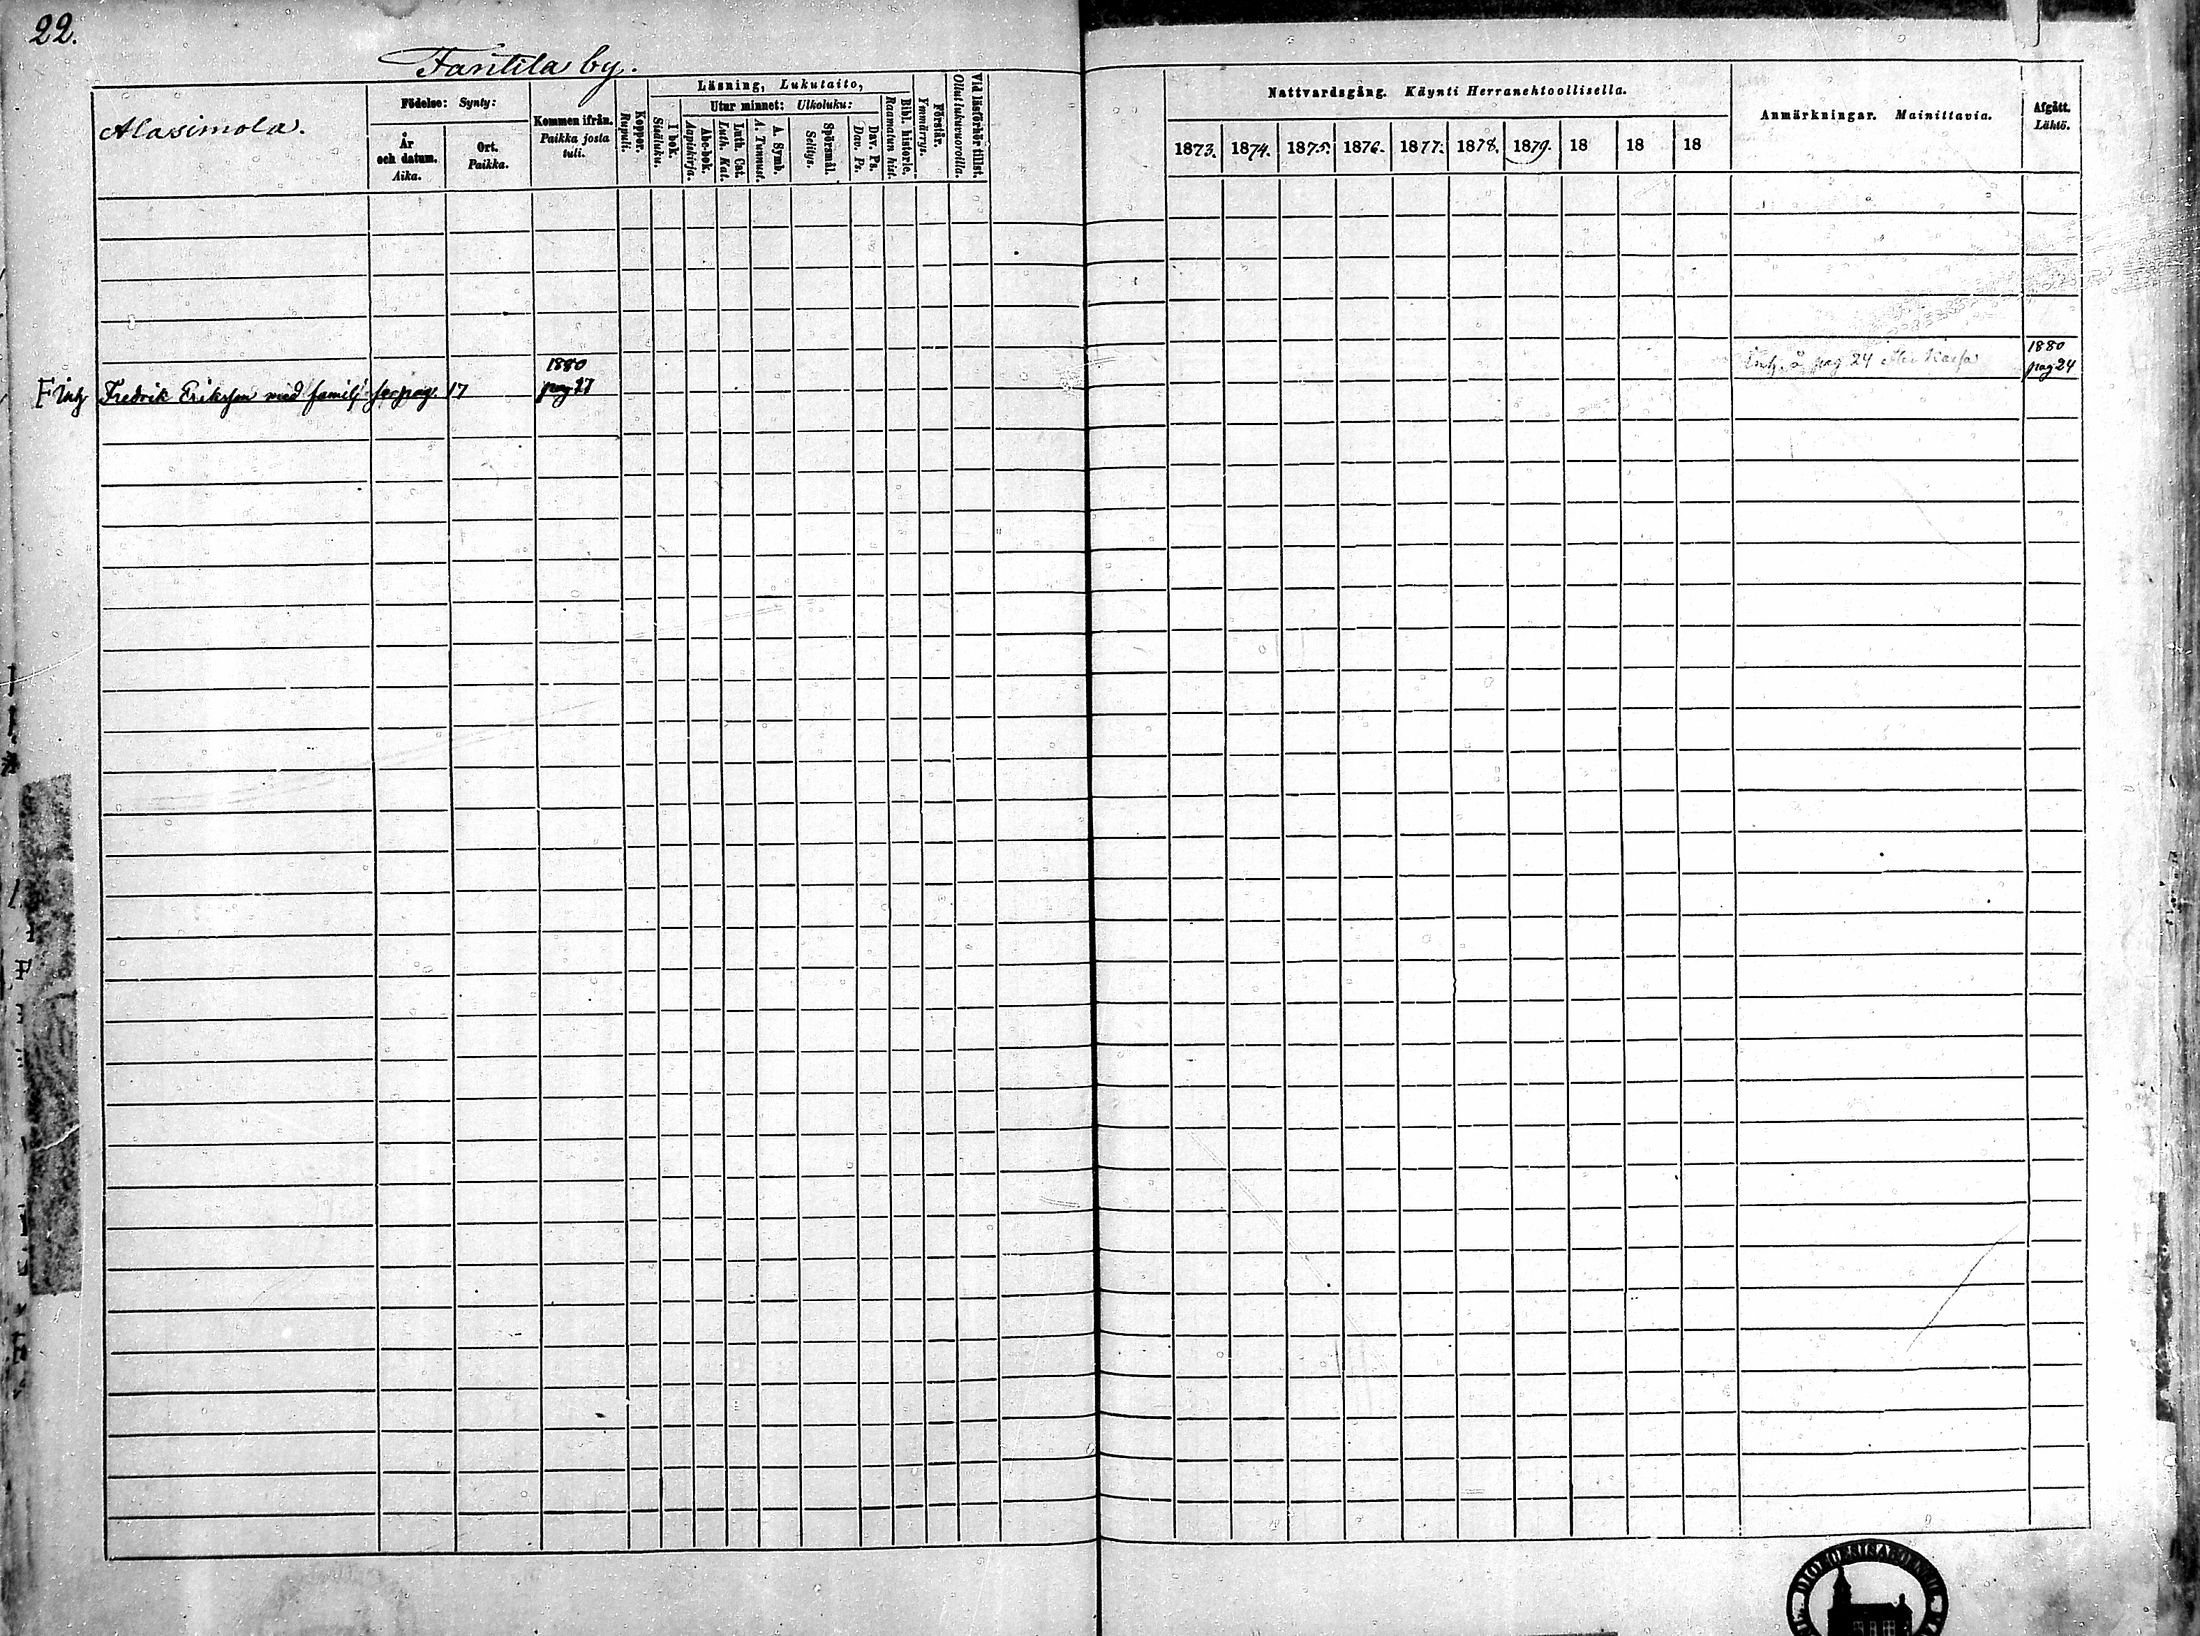 22.
Fantila by.
Alasimola.
Födelse: Synty:
År
och datum.
Aika.
Ort.
Paikka.
Kommen ifrån.
Paikka josta
tuli.
Koppor.
Rupuli.
Läsning, Lukutaito,
I bok.
Sisäluku.
Utur minnet: Ulkoluku:
Abc-bok.
Aapiskirja.
Luth. Cat.
Luth. Kat.
A. Symb.
A. Tunnust.
Spörsmål.
Selitys.
Dav. Ps.
Dav. Ps.
Bibl. historie.
Raamatun hist.
Förstår.
Ymmärryt.
Vid läsförhör tillst.
Ollut lukuvuoroilla.
Nattvardsgång. Käynti Herranehtoollisella.
1873. 1874. 1875. 1876. 1877. 1878. 1879. 18 18 18
Anmärkningar. Mainittavia.
Afgått.
Lähtö.
1880
Fredrik Eriksson med familj se pag. 17 pag 17
pag 24
1880
pag 24